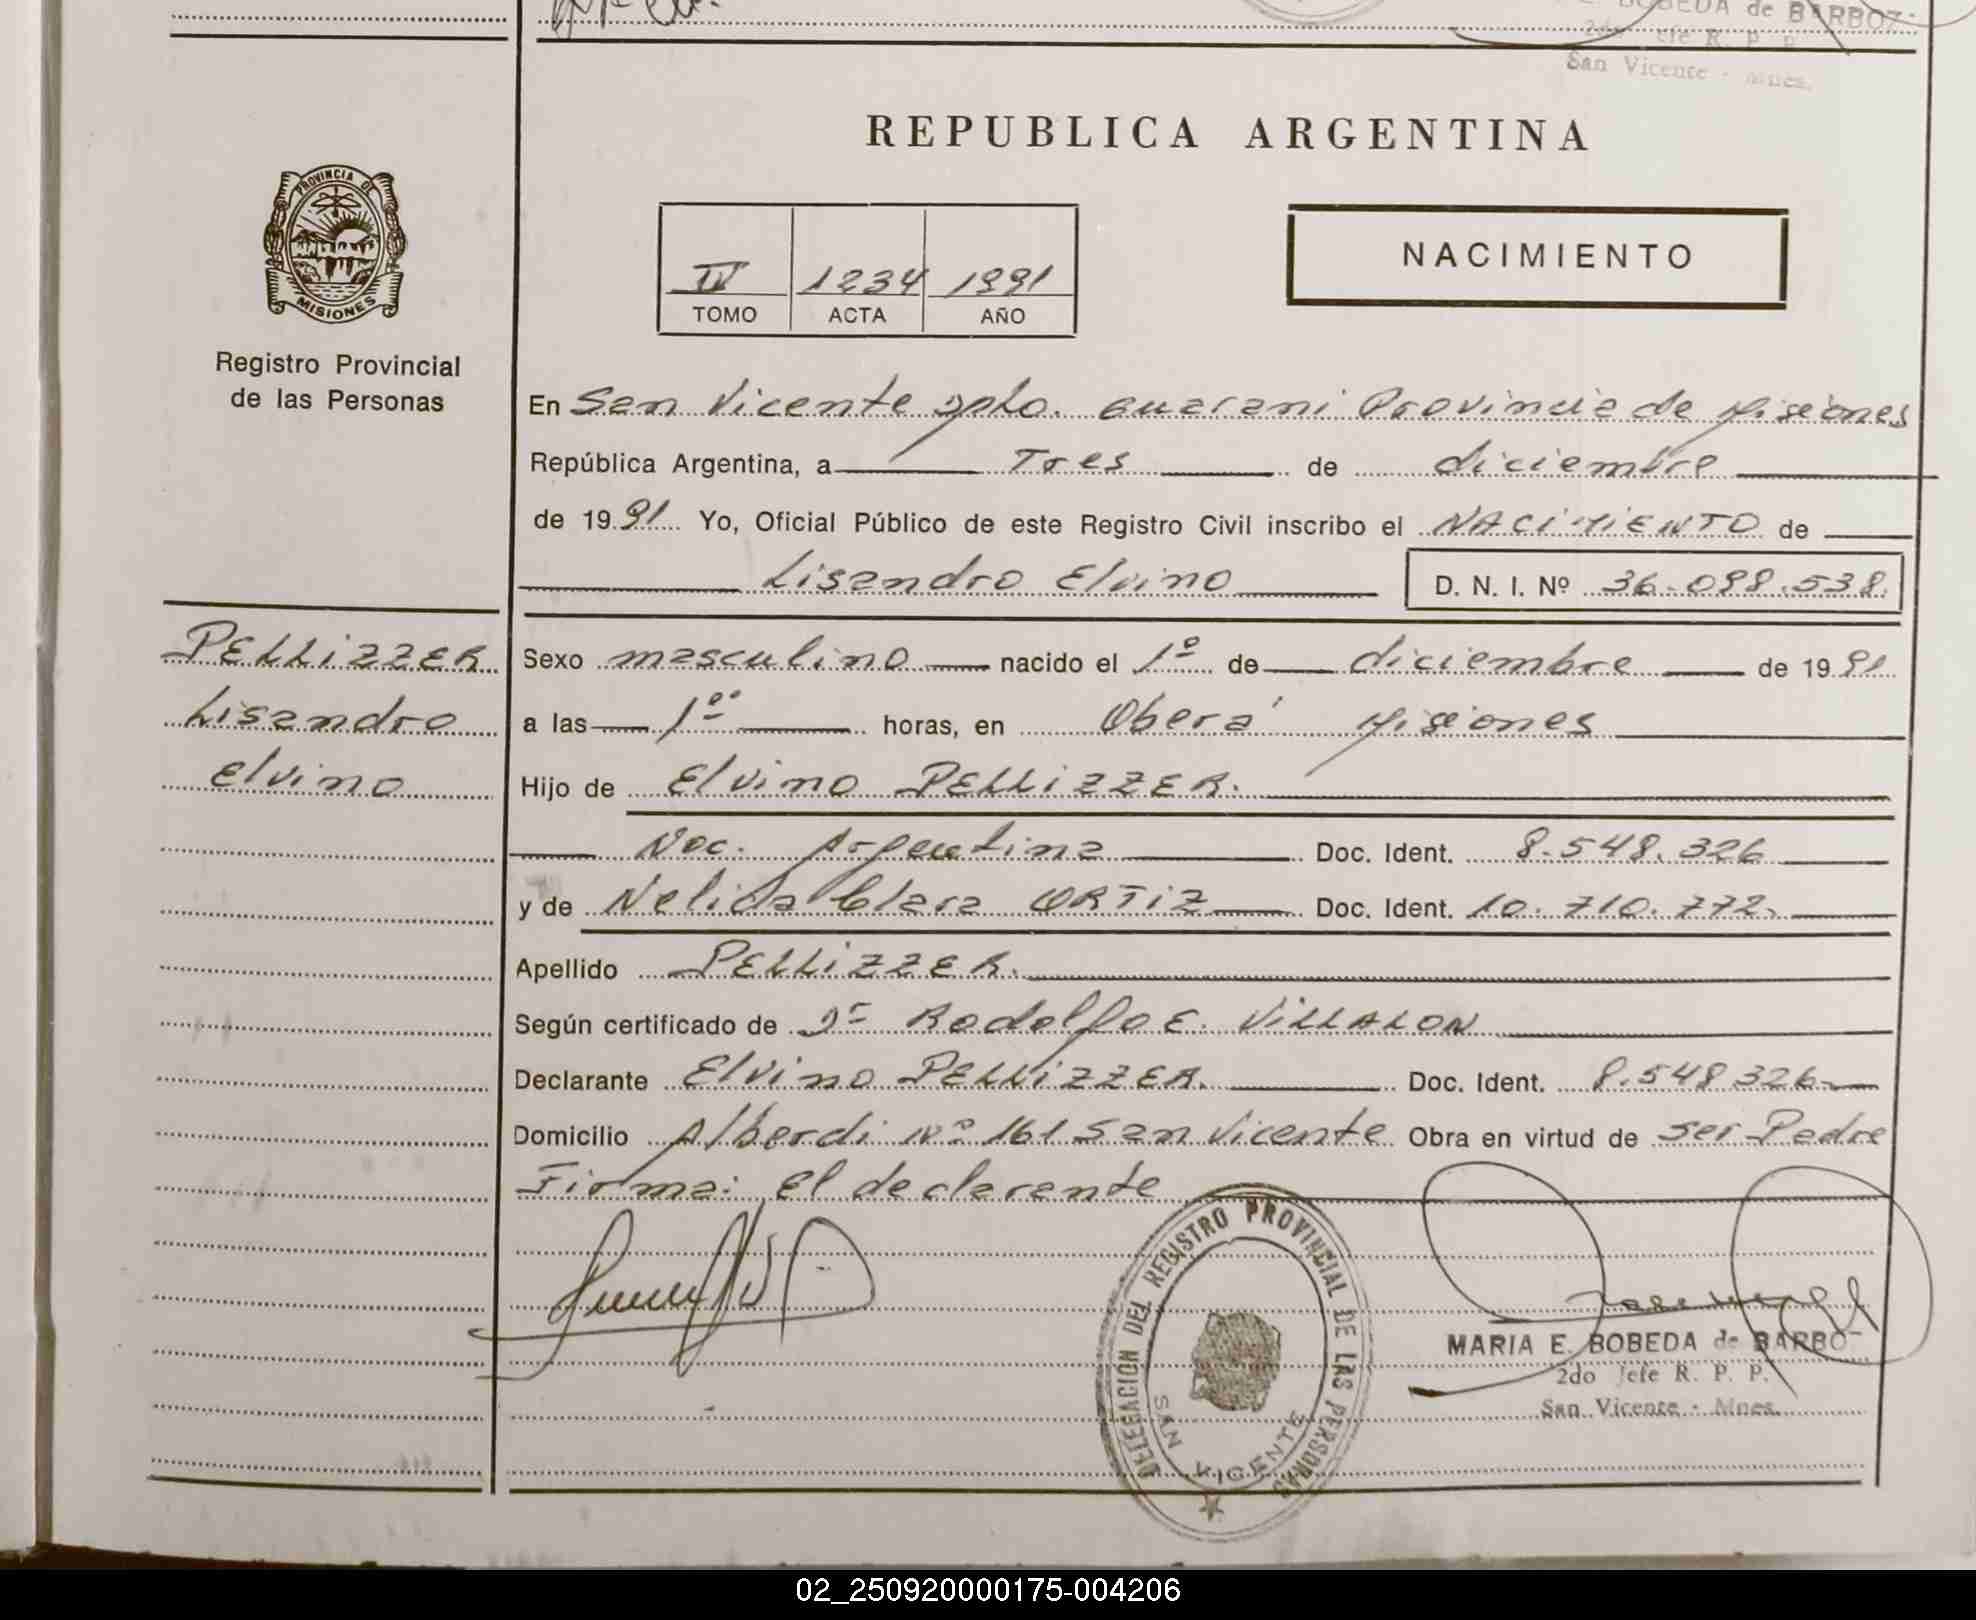 BOBEDA de BARBOZ
2do Jefe R. P. P.
San Vicente - Mnes.
REPUBLICA ARGENTINA
PROVINCIA DE
MISIONES
NACIMIENTO
IV 1234 1991
TOMO ACTA AÑO
Registro Provincial
de las Personas
En San Vicente Dpto. Guarani Provincia de Misiones
República Argentina, a Tres de diciembre
de 1991 Yo, Oficial Público de este Registro Civil inscribo el NACIMIENTO de
Lisandro Elvino D. N. I. Nº 36.098.538.
PELLIZZER
Lisandro
Elvino
Sexo masculino nacido el 1º de diciembre de 1991
a las 1º horas, en Oberá Misiones
Hijo de Elvino PELLIZZER.
Nac. Argentina Doc. Ident. 8.548.326
y de Nelida Clara ORTIZ Doc. Ident. 10.710.772.
Apellido PELLIZZER.
Según certificado de Dr Rodolfo E. VILLALON
Declarante Elvino PELLIZZER. Doc. Ident. 8.548.326
Domicilio Alberdi Nº 161 San Vicente Obra en virtud de ser Padre
Firma: El declarante
DELEGACIÓN DEL REGISTRO PROVINCIAL DE LAS PERSONAS
SAN VICENTE
MARIA E. BOBEDA de BARBO
2do Jefe R. P. P.
San Vicente - Mnes.
02_250920000175-004206